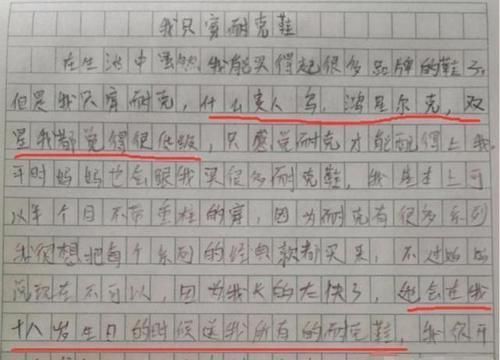 我只穿耐克鞋
在生活中虽然我能买得起很多品牌的鞋子,
但是我只穿耐克,什么安人乌,鸿星尔克,双
星我都觉得很低级,只感觉耐克才能配得上我
平时妈妈也会跟我买很多耐克鞋,我基本上可
以半个月不带重样的穿,因为耐克有很多系列
我很想把每个系列的经典款都买来,不过妈妈
说现在不可以,因为我长的太快了,她会在我
十八岁生日的时候送我所有的耐克鞋,我很开